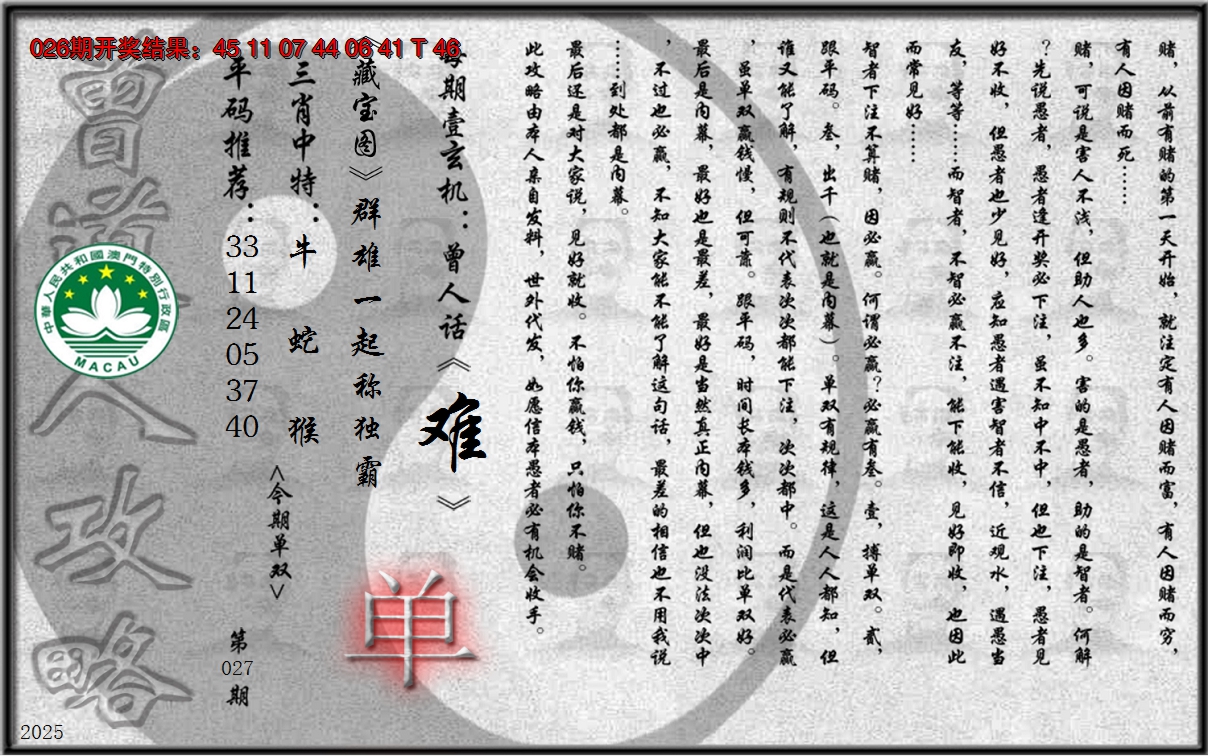 026期开奖结果：45 11 07 44 06 41 T 46
赌，从前有赌的第一天开始，就注定有人因赌而富，有人因赌而穷，
有人因赌而死……
赌，可说是害人不浅，但助人也多。害的是愚者，助的是智者。何解
？先说愚者，愚者逢开奖必下注，虽不知中不中，但也下注，愚者见
好不收，但愚者也少见好，应知愚者遇害智者不信，近观水，遇愚当
友，等等……而智者，不智必赢不注，能下能收，见好即收，也因此
而常见好……
智者下注不算赌，因必赢。何谓必赢？必赢有叁。壹，搏单双。贰，
跟平码。叁，出千（也就是内幕）。单双有规律，这是人人都知，但
谁又能了解，有规则不代表次次都能下注，次次都中。而是代表必赢
，虽单双赢钱慢，但可靠。跟平码，时间长本钱多，利润比单双好。
最后是内幕，最好也是最差，最好是当然真正内幕，但也没法次次中
，不过也必赢，不知大家能不能了解这句话，最差的相信也不用我说
……到处都是内幕。
最后还是对大家说，见好就收。不怕你赢钱，只怕你不赌。
此攻略由本人亲自发料，世外代发，如愿信本愚者必有机会收手。
每期壹玄机：曾人话《难》
《藏宝图》群雄一起称独霸
单
三肖中特：牛 蛇 猴
<今期单双>
平码推荐：33 11 24 05 37 40
第027期
曾道人攻略
中華人民共和國澳門特別行政區
MACAU
2025